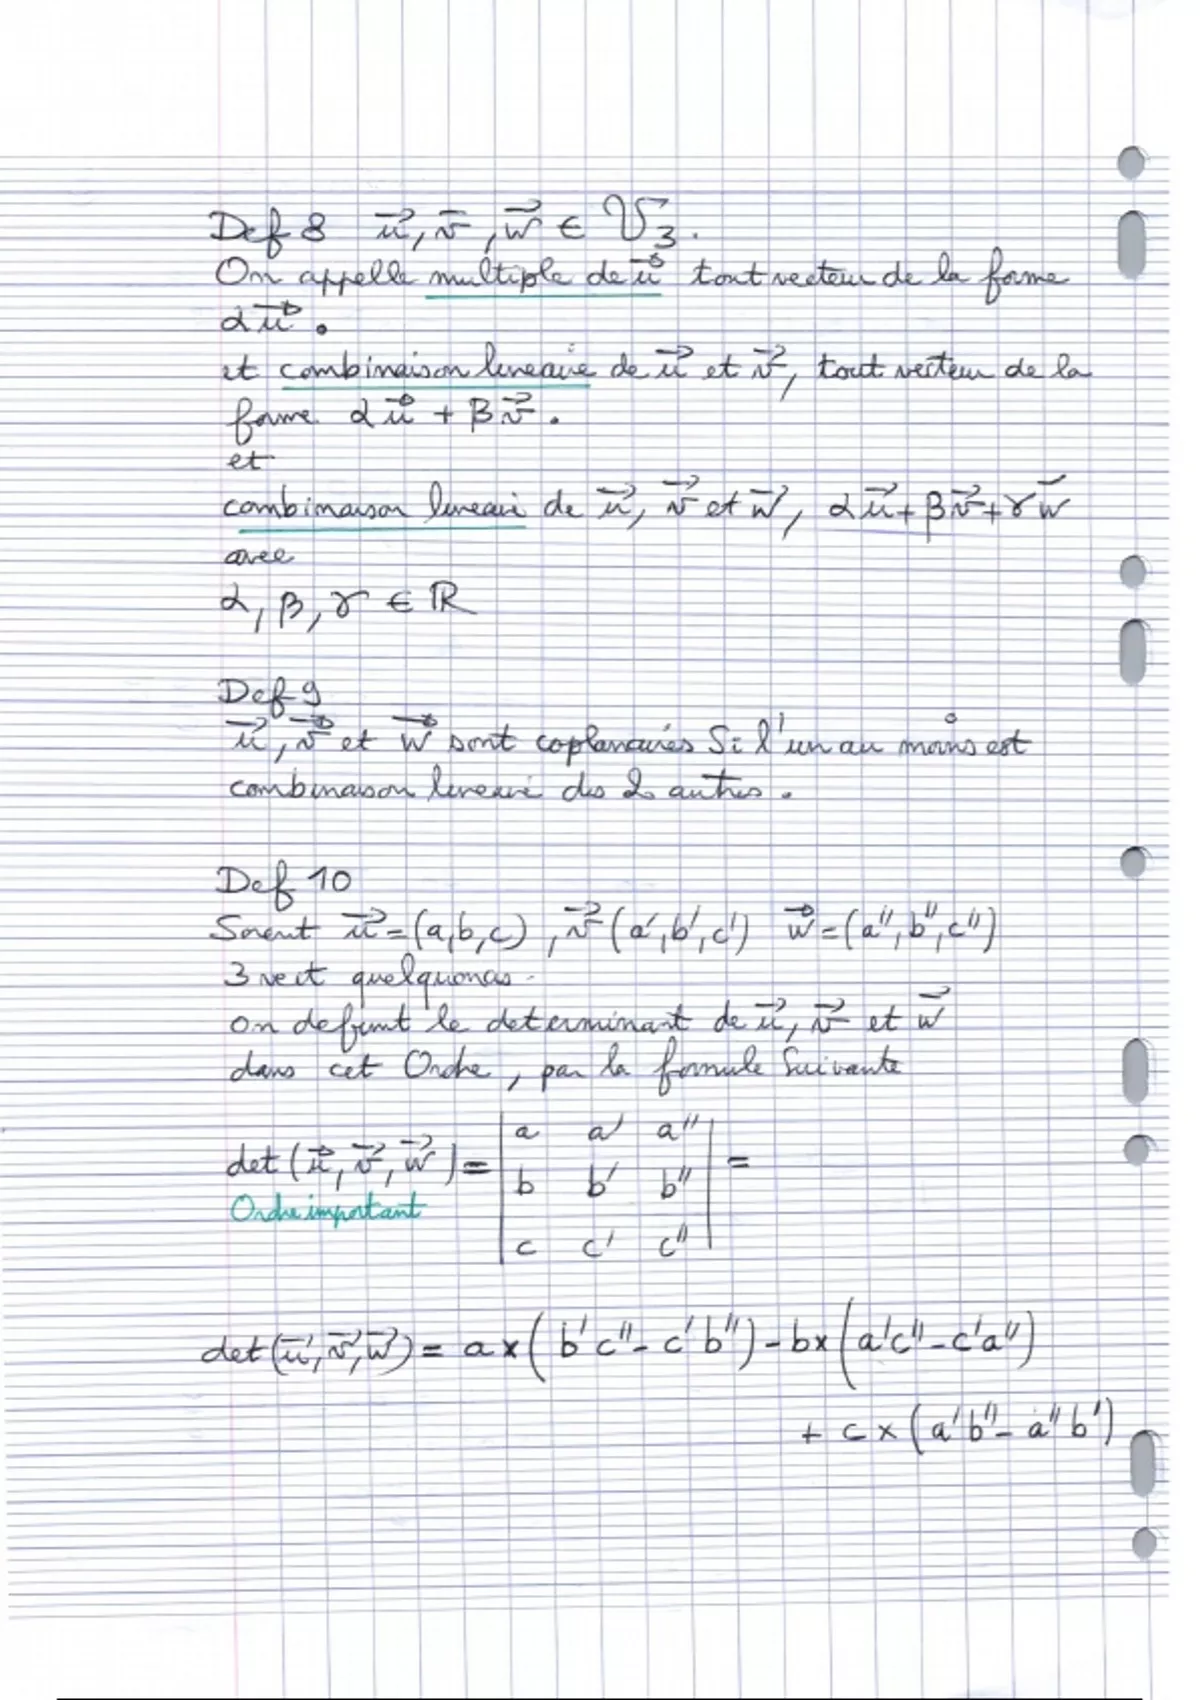 Def 8 u⃗, v⃗, w⃗ ∈ V₃.
On appelle multiple de u⃗ tout vecteur de la forme
αu⃗.
et combinaison lineaire de u⃗ et v⃗, tout vecteur de la
forme αu⃗ + βv⃗.
et
combinaison lineaire de u⃗, v⃗ et w⃗, αu⃗ + βv⃗ + γw⃗
avec
α, β, γ ∈ ℝ
Def 9
u⃗, v⃗ et w⃗ sont coplanaires Si l'un au moins est
combinaison lineaire des 2 autres.
Def 10
Soient u⃗ = (a, b, c), v⃗ (a', b', c') w⃗ = (a'', b'', c'')
3 vect quelquoncas.
on definit le determinant de u⃗, v⃗ et w⃗
dans cet Ordre, par la formule Suivante
a a' a''
det (u⃗, v⃗, w⃗) = | b b' b'' | =
Ordre important
c c' c''
det (u⃗, v⃗, w⃗) = a x ( b'c'' - c'b'') - b x (a'c'' - c'a'')
+ c x (a'b'' - a''b')